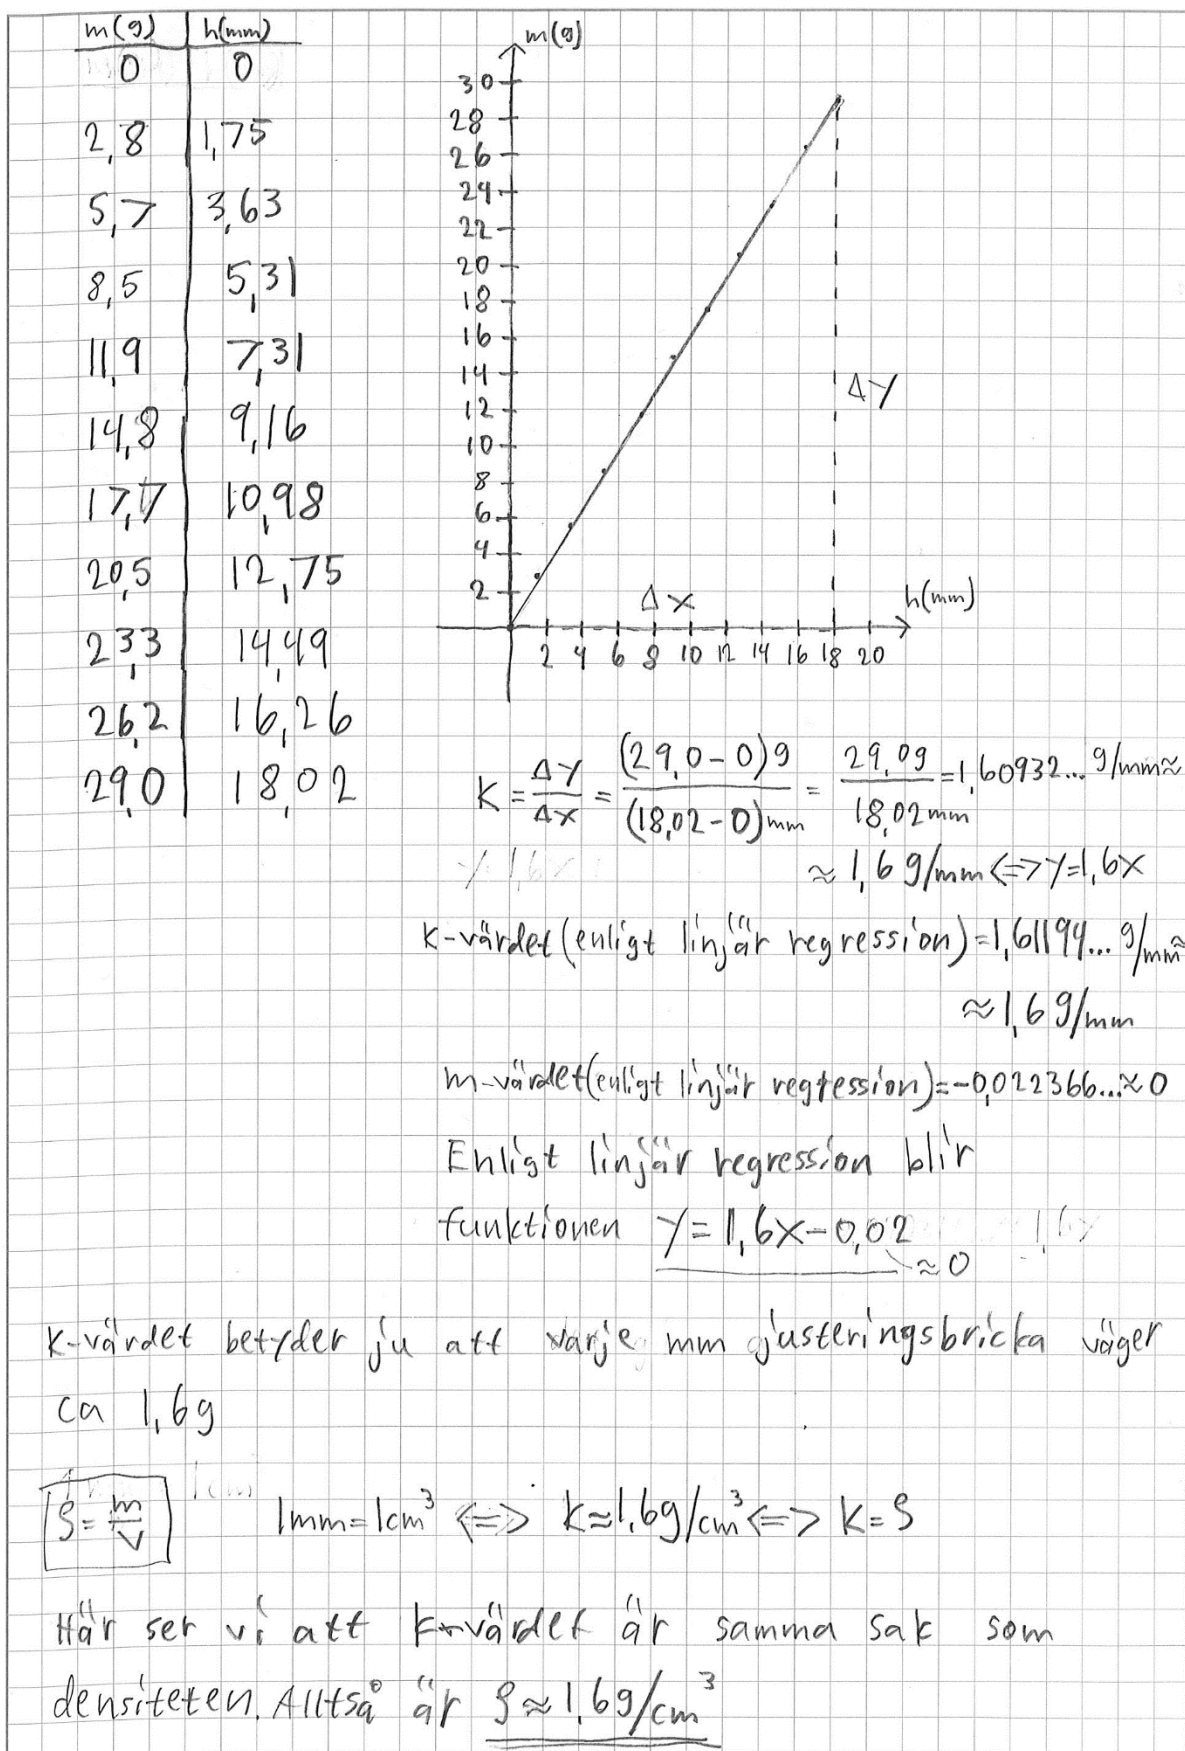 m(g) h(mm)
0 0
2,8 1,75
5,7 3,63
8,5 5,31
11,9 7,31
14,8 9,16
17,7 10,98
20,5 12,75
23,3 14,49
26,2 16,26
29,0 18,02
m(g)
30
28
26
24
22
20
18
16
14
12
10
8
6
4
2
Δy
Δx
h(mm)
2 4 6 8 10 12 14 16 18 20
K = Δy/Δx = (29,0-0)g/(18,02-0)mm = 29,0g/18,02mm = 1,60932... g/mm≈
≈ 1,6 g/mm <=> y=1,6x
K-värdet (enligt linjär regression) = 1,61194... g/mm≈
≈ 1,6 g/mm
m-värdet (enligt linjär regression) = -0,022366... ≈ 0
Enligt linjär regression blir
funktionen y = 1,6x-0,02
≈ 0
K-värdet betyder ju att varje mm justeringsbricka väger
ca 1,6g
ρ = m/V 1mm=1cm³ <=> K≈1,6g/cm³ <=> K=ρ
Här ser vi att K-värdet är samma sak som
densiteten. Alltså är ρ≈1,6g/cm³